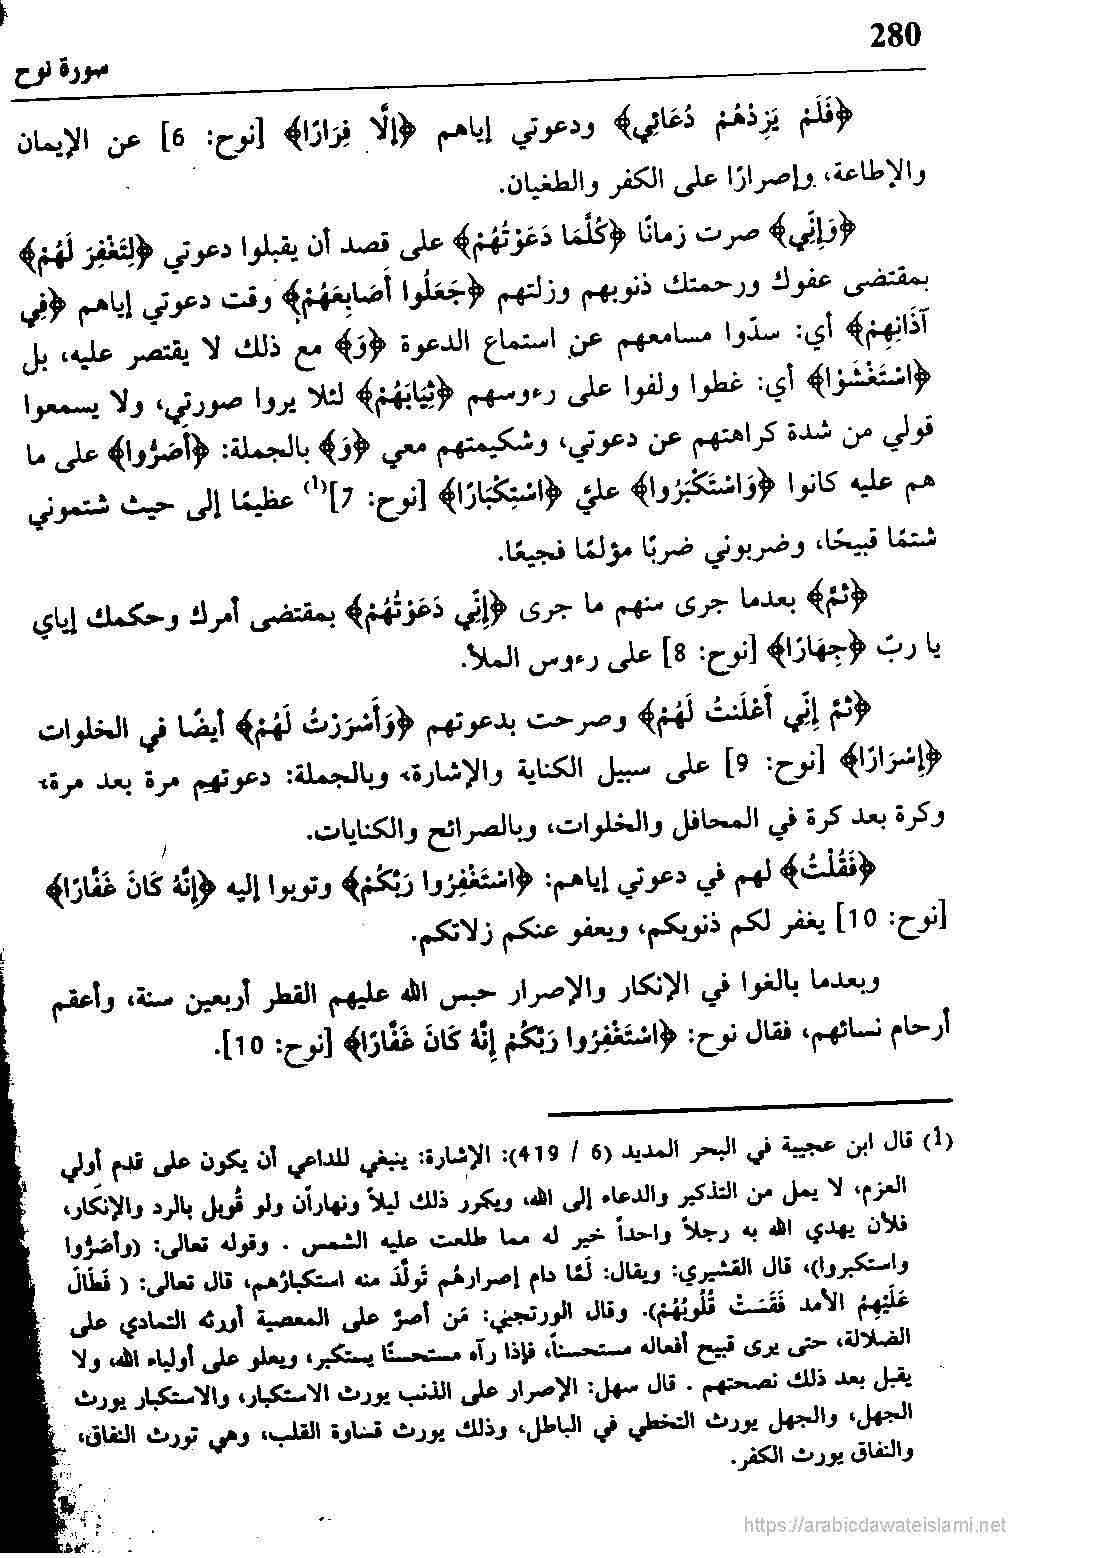 280
سورة نوح
﴿فَلَمْ يَزِدْهُمْ دُعَائِي﴾ ودعوتي إياهم ﴿إِلَّا فِرَارًا﴾ [نوح: 6] عن الإيمان
والإطاعة، وإصرارًا على الكفر والطغيان.
﴿وَإِنِّي﴾ صرت زمانًا ﴿كُلَّمَا دَعَوْتُهُمْ﴾ على قصد أن يقبلوا دعوتي ﴿لِتَغْفِرَ لَهُمْ﴾
بمقتضى عفوك ورحمتك ذنوبهم وزلتهم ﴿جَعَلُوا أَصَابِعَهُمْ﴾ وقت دعوتي إياهم ﴿فِي
آذَانِهِمْ﴾ أي: سدّوا مسامعهم عن استماع الدعوة ﴿وَ﴾ مع ذلك لا يقتصر عليه، بل
﴿اسْتَغْشَوْا﴾ أي: غطوا ولفوا على رءوسهم ﴿ثِيَابَهُمْ﴾ لئلا يروا صورتي، ولا يسمعوا
قولي من شدة كراهتهم عن دعوتي، وشكيمتهم معي ﴿وَ﴾ بالجملة: ﴿أَصَرُّوا﴾ على ما
هم عليه كانوا ﴿وَاسْتَكْبَرُوا﴾ عليّ ﴿اسْتِكْبَارًا﴾ [نوح: 7](1) عظيمًا إلى حيث شتموني
شتمًا قبيحًا، وضربوني ضربًا مؤلمًا فجيعًا.
﴿ثُمَّ﴾ بعدما جرى منهم ما جرى ﴿إِنِّي دَعَوْتُهُمْ﴾ بمقتضى أمرك وحكمك إياي
يا ربّ ﴿جِهَارًا﴾ [نوح: 8] على رءوس الملأ.
﴿ثُمَّ إِنِّي أَعْلَنتُ لَهُمْ﴾ وصرحت بدعوتهم ﴿وَأَسْرَرْتُ لَهُمْ﴾ أيضًا في الخلوات
﴿إِسْرَارًا﴾ [نوح: 9] على سبيل الكناية والإشارة، وبالجملة: دعوتهم مرة بعد مرة،
وكرة بعد كرة في المحافل والخلوات، وبالصرائح والكنايات.
﴿فَقُلْتُ﴾ لهم في دعوتي إياهم: ﴿اسْتَغْفِرُوا رَبَّكُمْ﴾ وتوبوا إليه ﴿إِنَّهُ كَانَ غَفَّارًا﴾
[نوح: 10] يغفر لكم ذنوبكم، ويعفو عنكم زلاتكم.
وبعدما بالغوا في الإنكار والإصرار حبس الله عليهم القطر أربعين سنة، وأعقم
أرحام نسائهم، فقال نوح: ﴿اسْتَغْفِرُوا رَبَّكُمْ إِنَّهُ كَانَ غَفَّارًا﴾ [نوح: 10].
(1) قال ابن عجيبة في البحر المديد (6 / 419): الإشارة: ينبغي للداعي أن يكون على قدم أولي
العزم، لا يمل من التذكير والدعاء إلى الله، ويكرر ذلك ليلاً ونهاراً، ولو قُوبل بالرد والإنكار،
فلأن يهدي الله به رجلاً واحداً خير له مما طلعت عليه الشمس . وقوله تعالى: (وأصَرُّوا
واستكبروا)، قال القشيري: ويقال: لَمَّا دام إصرارهُم تَولَّدَ منه استكبارُهم، قال تعالى: ( فَطَالَ
عَلَيْهِمُ الأمد فَقَسَتْ قُلُوبُهُمْ). وقال الورتجبي: مَن أصرَّ على المعصية أورثه التمادي على
الضلالة، حتى يرى قبيح أفعاله مستحسناً، فإذا رآه مستحسنًا يستكبر، ويعلو على أولياء الله، ولا
يقبل بعد ذلك نصحتهم . قال سهل: الإصرار على الذنب يورث الاستكبار، والاستكبار يورث
الجهل، والجهل يورث التخطي في الباطل، وذلك يورث قساوة القلب، وهي تورث النفاق،
والنفاق يورث الكفر.
https://arabicdawateislami.net